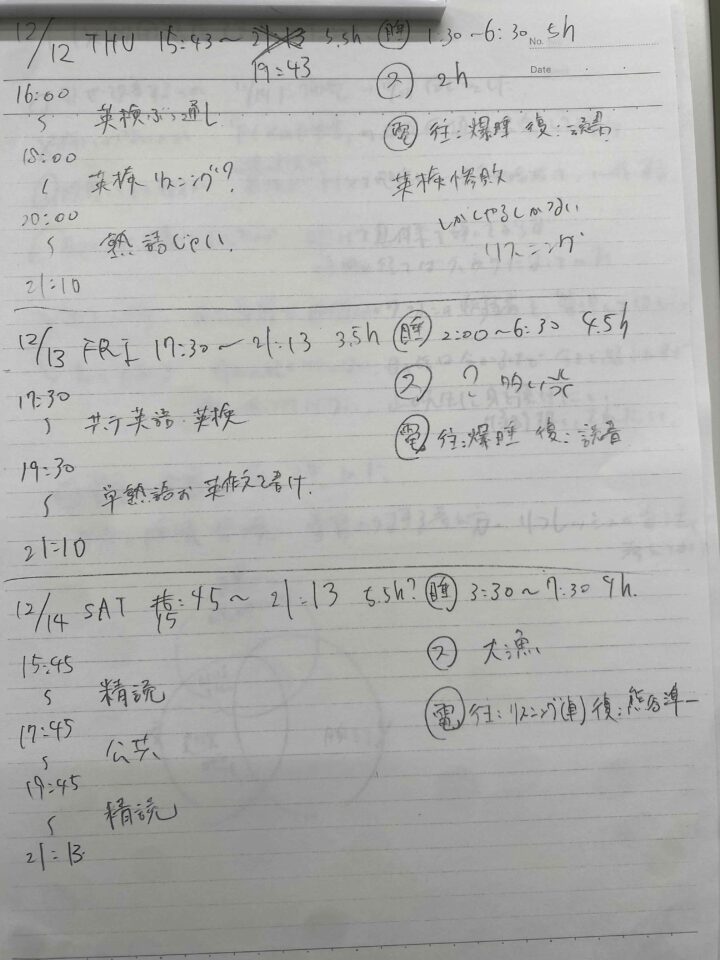 12/12 THU 15:43〜21:13 5.5h
19:43
睡 1:30〜6:30 5h
No.
Date
ス 2h
電 往:爆睡 復:読書
16:00
〜 英検ぶっ通し
18:00
〜 英検リスニング?
20:00
〜 熟語
21:10
英検惨敗
しかしやるしかない
リスニング
12/13 FRI 17:30〜21:13 3.5h
睡 2:00〜6:30 4.5h
ス ?
電 往:爆睡 復:読書
17:30
〜 共テ英語 英検
19:30
〜 単熟語 英作文
21:10
12/14 SAT 15:45〜21:13 5.5h?
睡 3:30〜7:30 4h.
ス 大漁
電 往:リスニング(車) 復:熊谷準一
15:45
〜 精読
17:45
〜 公共
19:45
〜 精読
21:13